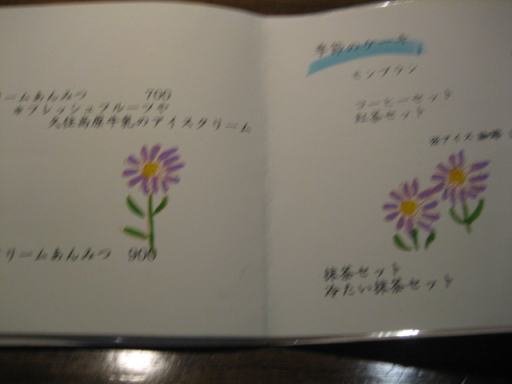 ームあんみつ 700
※フレッシュフルーツや
久住高原牛乳のアイスクリーム
リームあんみつ 900
季節のケーキ
モンブラン
コーヒーセット
紅茶セット
※アイス
抹茶セット
冷たい抹茶セット